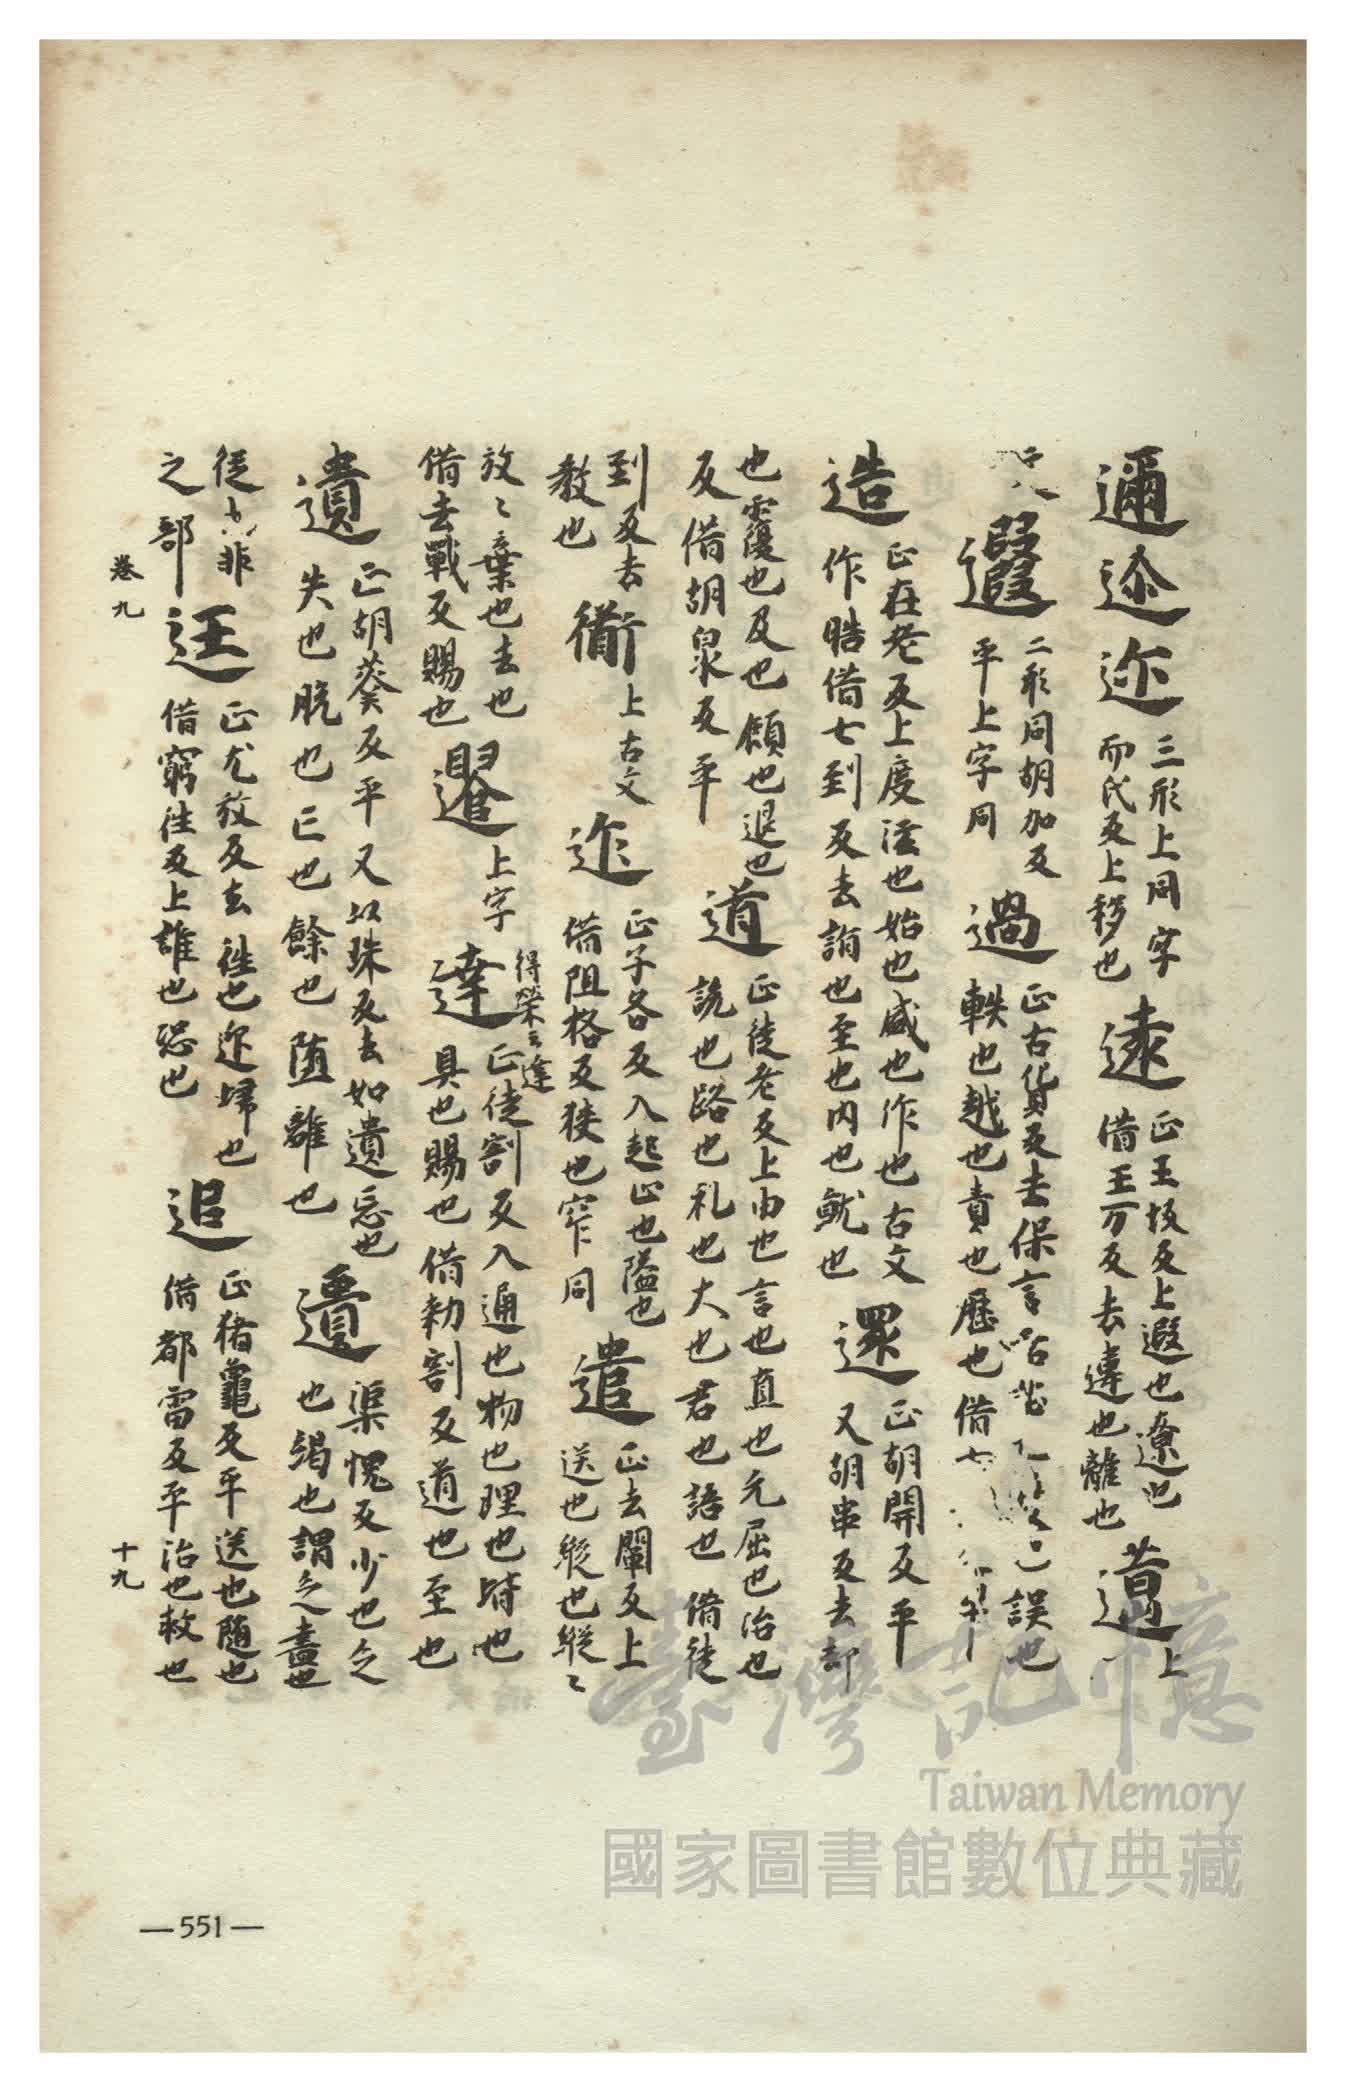 邇迩迩三形上同字
而氏反上移也遠正王坂反上遐也遼也
借王万反去違也離也 上
遐二形同胡加反
平上字同過正古貨反去保言 誤也
軼也越也責也歷也借
造正在老反上度淦也始也感也作也古文
作晧借七到反去詣也至也内也就也還正胡開反平
又胡串反去却
也覆也及也顧也退也
反借胡泉反平道正徒老反上由也言也直也元屈也治也
說也路也礼也大也君也語也借徒
到反去
教也衜上古文迮正子各反入起正也隘也
借阻格反狹也窄同遣正去闡反上
送也縱也縱〻
放〻棄也去也
借去戰反賜也 上字達正徒割反入通也物也理也時也
得榮云達
具也賜也借勑割反道也至也
遺正胡葵反平又以珠反去如遺忘也
失也脱也亡也餘也堕離也 渠愧反少也乏
也竭也謂之盡也
從 非
之部迋正尤放反去往也迩歸也
借窮往反上誰也恐也追正猪龜反平送也随也
借都雷反平治也救也
卷九
十九
—551—
臺灣記憶
Taiwan Memory
國家圖書館數位典藏